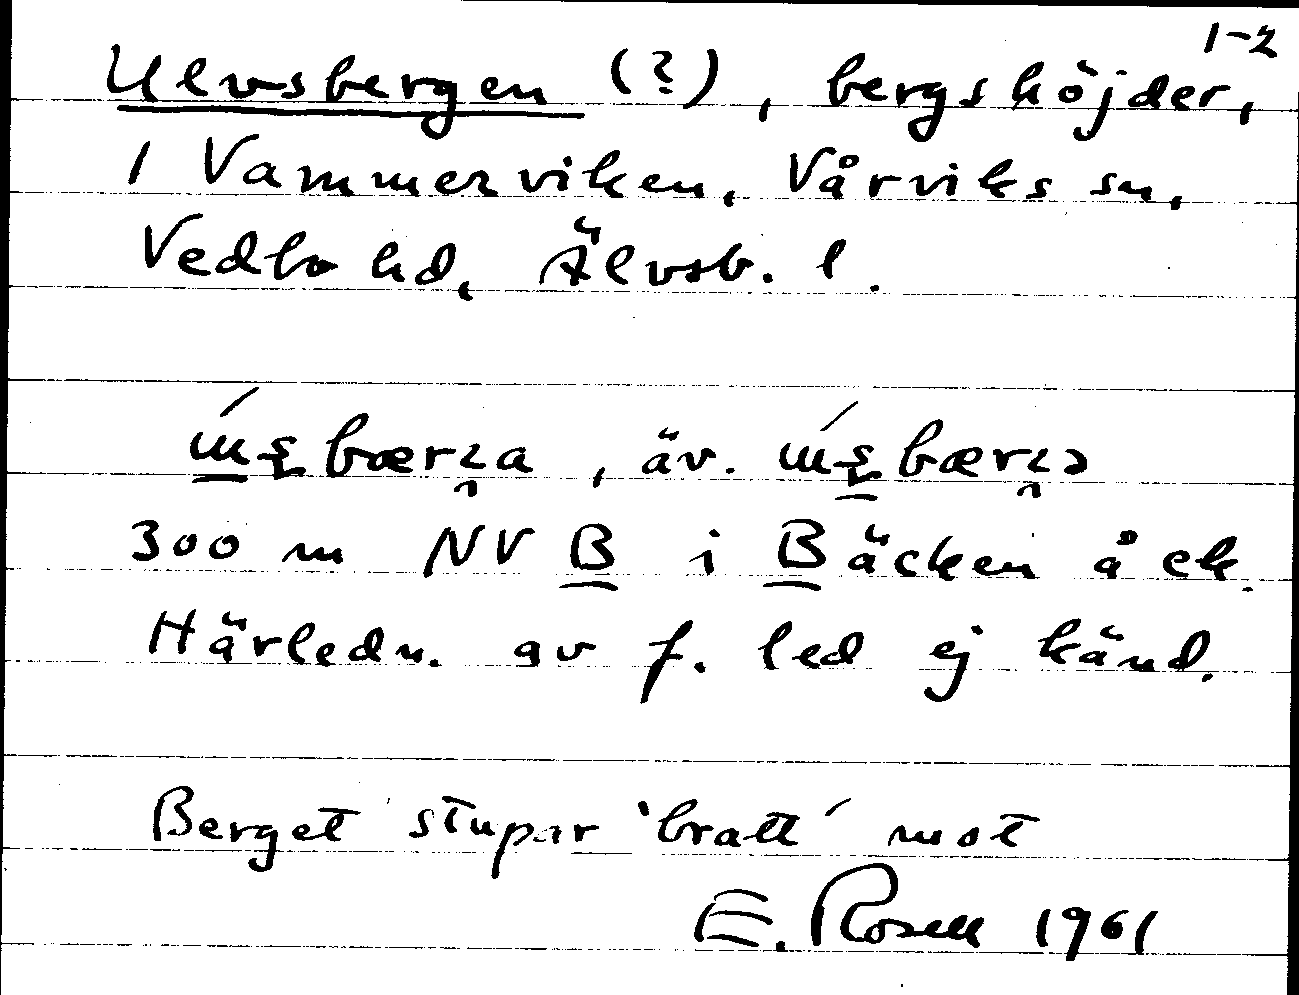 1-2
Ulvsbergen (?), bergshöjder,
1 Vammerviken, Vårviks sn,
Vedbo hd, Älvsb. l.
, äv.
300 m NV B i Bäcken å ek.
Härledn. av f. led ej känd.
Berget stupar 'bratt' mot
E. Rosell 1961